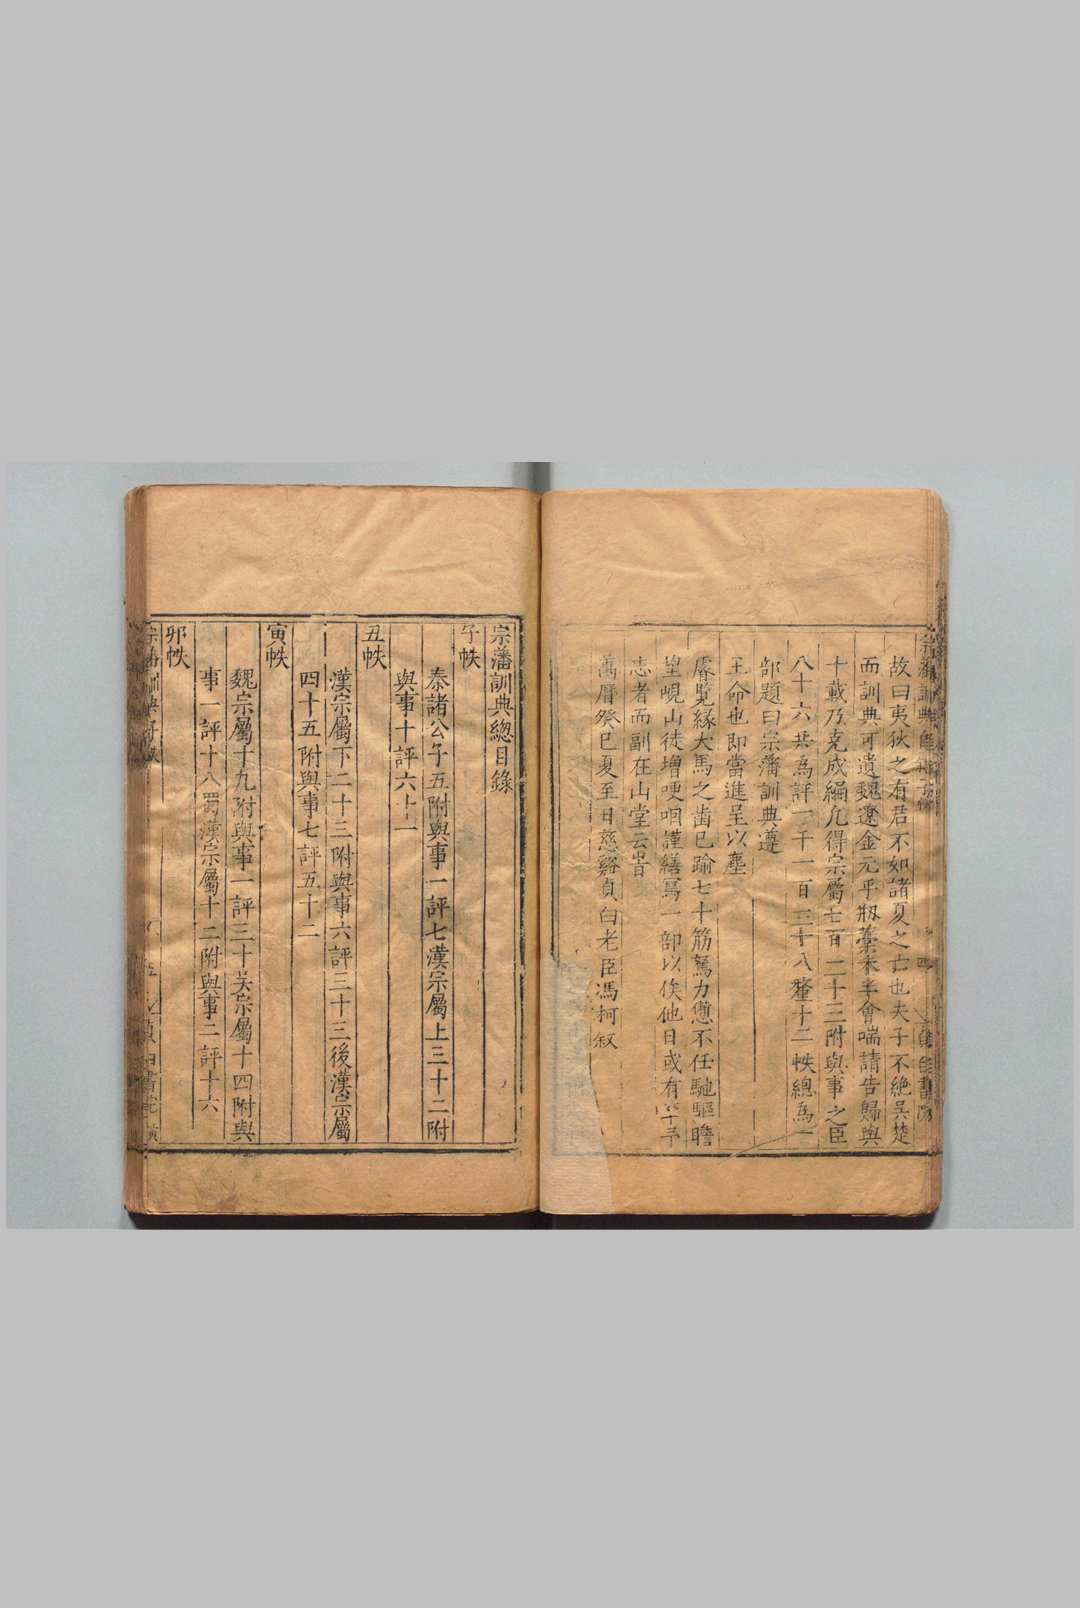 故曰夷狄之有君不如諸夏之亡也夫子不絶吳楚
而訓典可遺魏遼金元乎會喘請告歸與
十載乃克成編凡得宗屬七百二十三附與事之臣
八十六共為評一千一百三十八釐十二帙總為一
部題曰宗藩訓典遵
王命也即當進呈以塵
睿覽緣犬馬之齒已踰七十筋駑力憊不任馳驅瞻
望峴山徒增哽咽謹繕寫一部以俟他日或有
志者而副在山堂云旹
萬曆癸巳夏至日慈谿貞白老臣馮柯叙
宗藩訓典總目錄
子帙
秦諸公子五附與事一評七漢宗屬上三十二附
與事十評六十一
丑帙
漢宗屬下二十三附與事六評三十三後漢宗屬
四十五附與事七評五十二
寅帙
魏宗屬十九附與事一評三十吴宗屬十四附與
事一評十八蜀漢宗屬十二附與事二評十六
卯帙